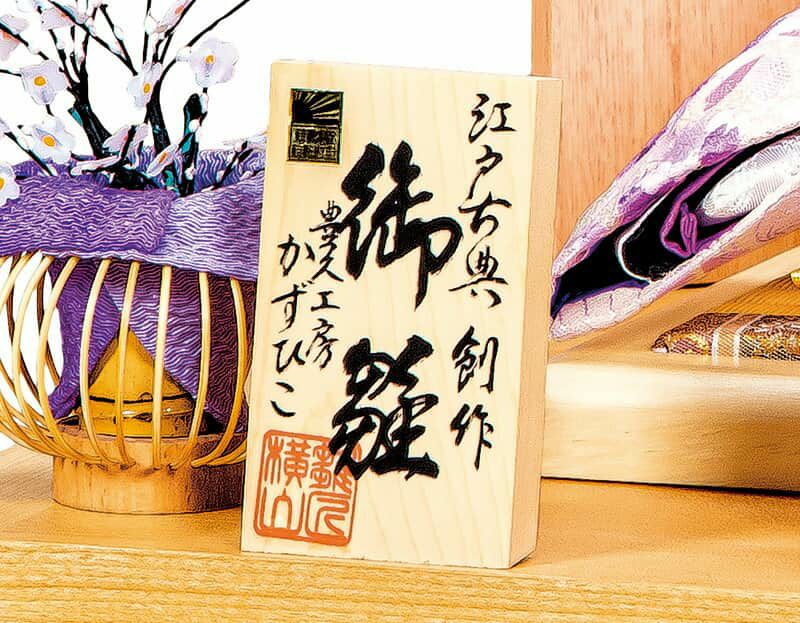 江戸古典 創作
御雛
豊久工房
かずひこ
横山